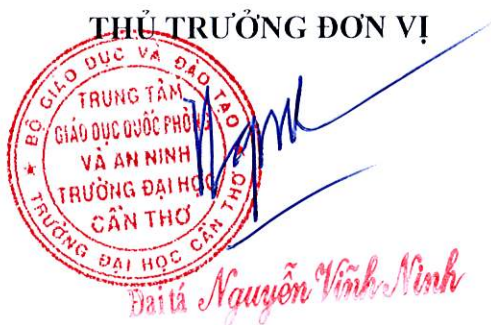 THỦ TRƯỞNG ĐƠN VỊ
BỘ GIÁO DỤC VÀ ĐÀO TẠO
TRUNG TÂM
GIÁO DỤC QUỐC PHÒNG
VÀ AN NINH
TRƯỜNG ĐẠI HỌC
CẦN THƠ
TRƯỜNG ĐẠI HỌC CẦN THƠ
Đại tá Nguyễn Vĩnh Ninh